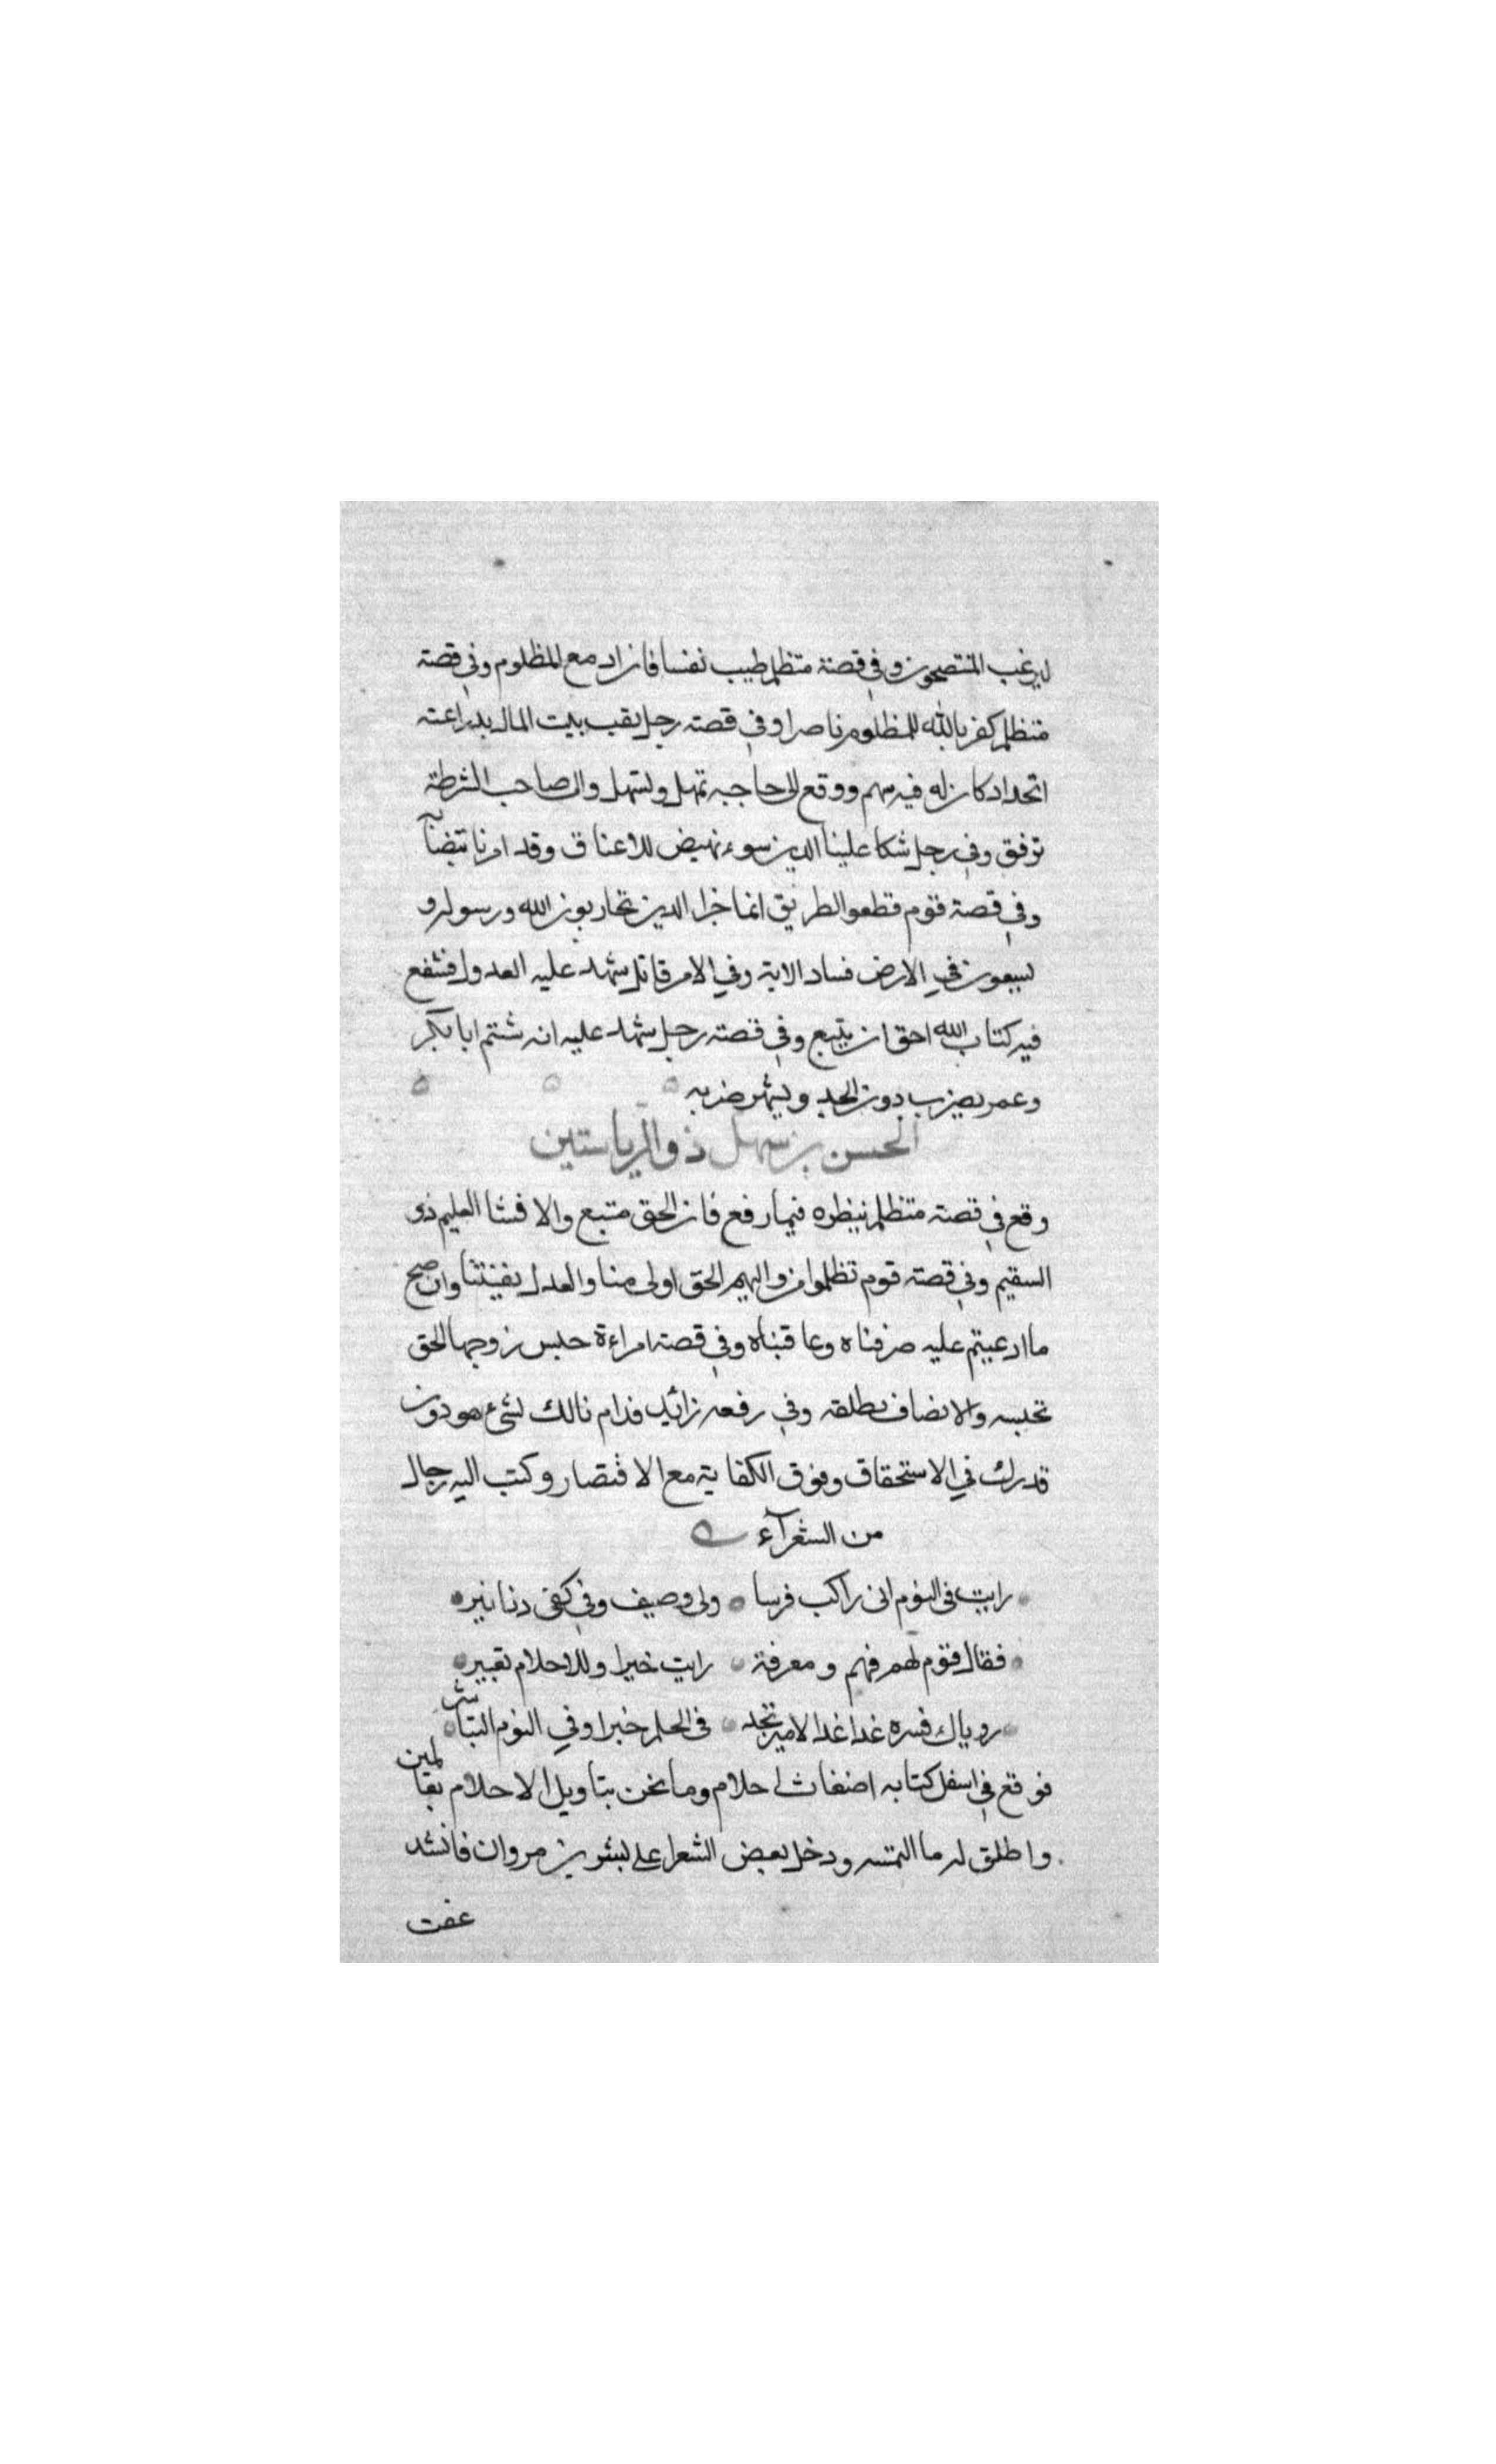 ليرغب المنتصحون وفي قصة متظلم طيب نفسا فان الله مع المظلوم وفي قصة
متظلم كفى بالله للمظلوم ناصرا وفي قصة رجل نقب بيت المال بدراعته
اتحداد كان له فيه سهم ووقع الى حاجبه تمهل وتسهل والى صاحب الشرطة
توفق وفي رجل شكا علينا الدين سوء نهيض للاعناق وقد امرنا بقضائه
وفي قصة قوم قطعوا الطريق انما جزاء الذين يحاربون الله ورسوله و
يسعون في الارض فساد الاية وفي الامر قاتل شهد عليه العدول فشفع
فيه كتاب الله احق ان يتبع وفي قصة رجل شهد عليه انه شتم ابا بكر
وعمر يضرب دون الحد ويشهر ضربه
الحسن بن سهل ذو الرياستين
وقع في قصة متظلم ينظره فيما رفع فان الحق متبع والا فشا العليم ذوى
السقيم وفي قصة قوم تظلموا من واليهم الحق اولى منا والعدل بغيتنا وان صح
ما ادعيتم عليه صرفناه وعاقبناه وفي قصة امراءة حبس زوجها الحق
تحبسه والانصاف يطلقه وفي رفعه زائد قدام نالك لشئ هو دون
قدرك في الاستحقاق وفوق الكفاية مع الاقتصار وكتب اليه رجال
من الشعرآء
رايت في النوم انى راكب فرسا ولى وصيف وفي كفى دنانير
فقال قوم لهم فهم ومعرفة رايت خيرا وللاحلام تعبير
روياك فسره غدا غدا الامير تجد فى الحلم خبرا وفي النوم التباشير
فوقع في اسفل كتابه اضغاث احلام وما نحن بتاويل الاحلام بعالمين
واطلق له ما التمسه ودخل بعض الشعرا على بشر بن مروان فانشد
عفت